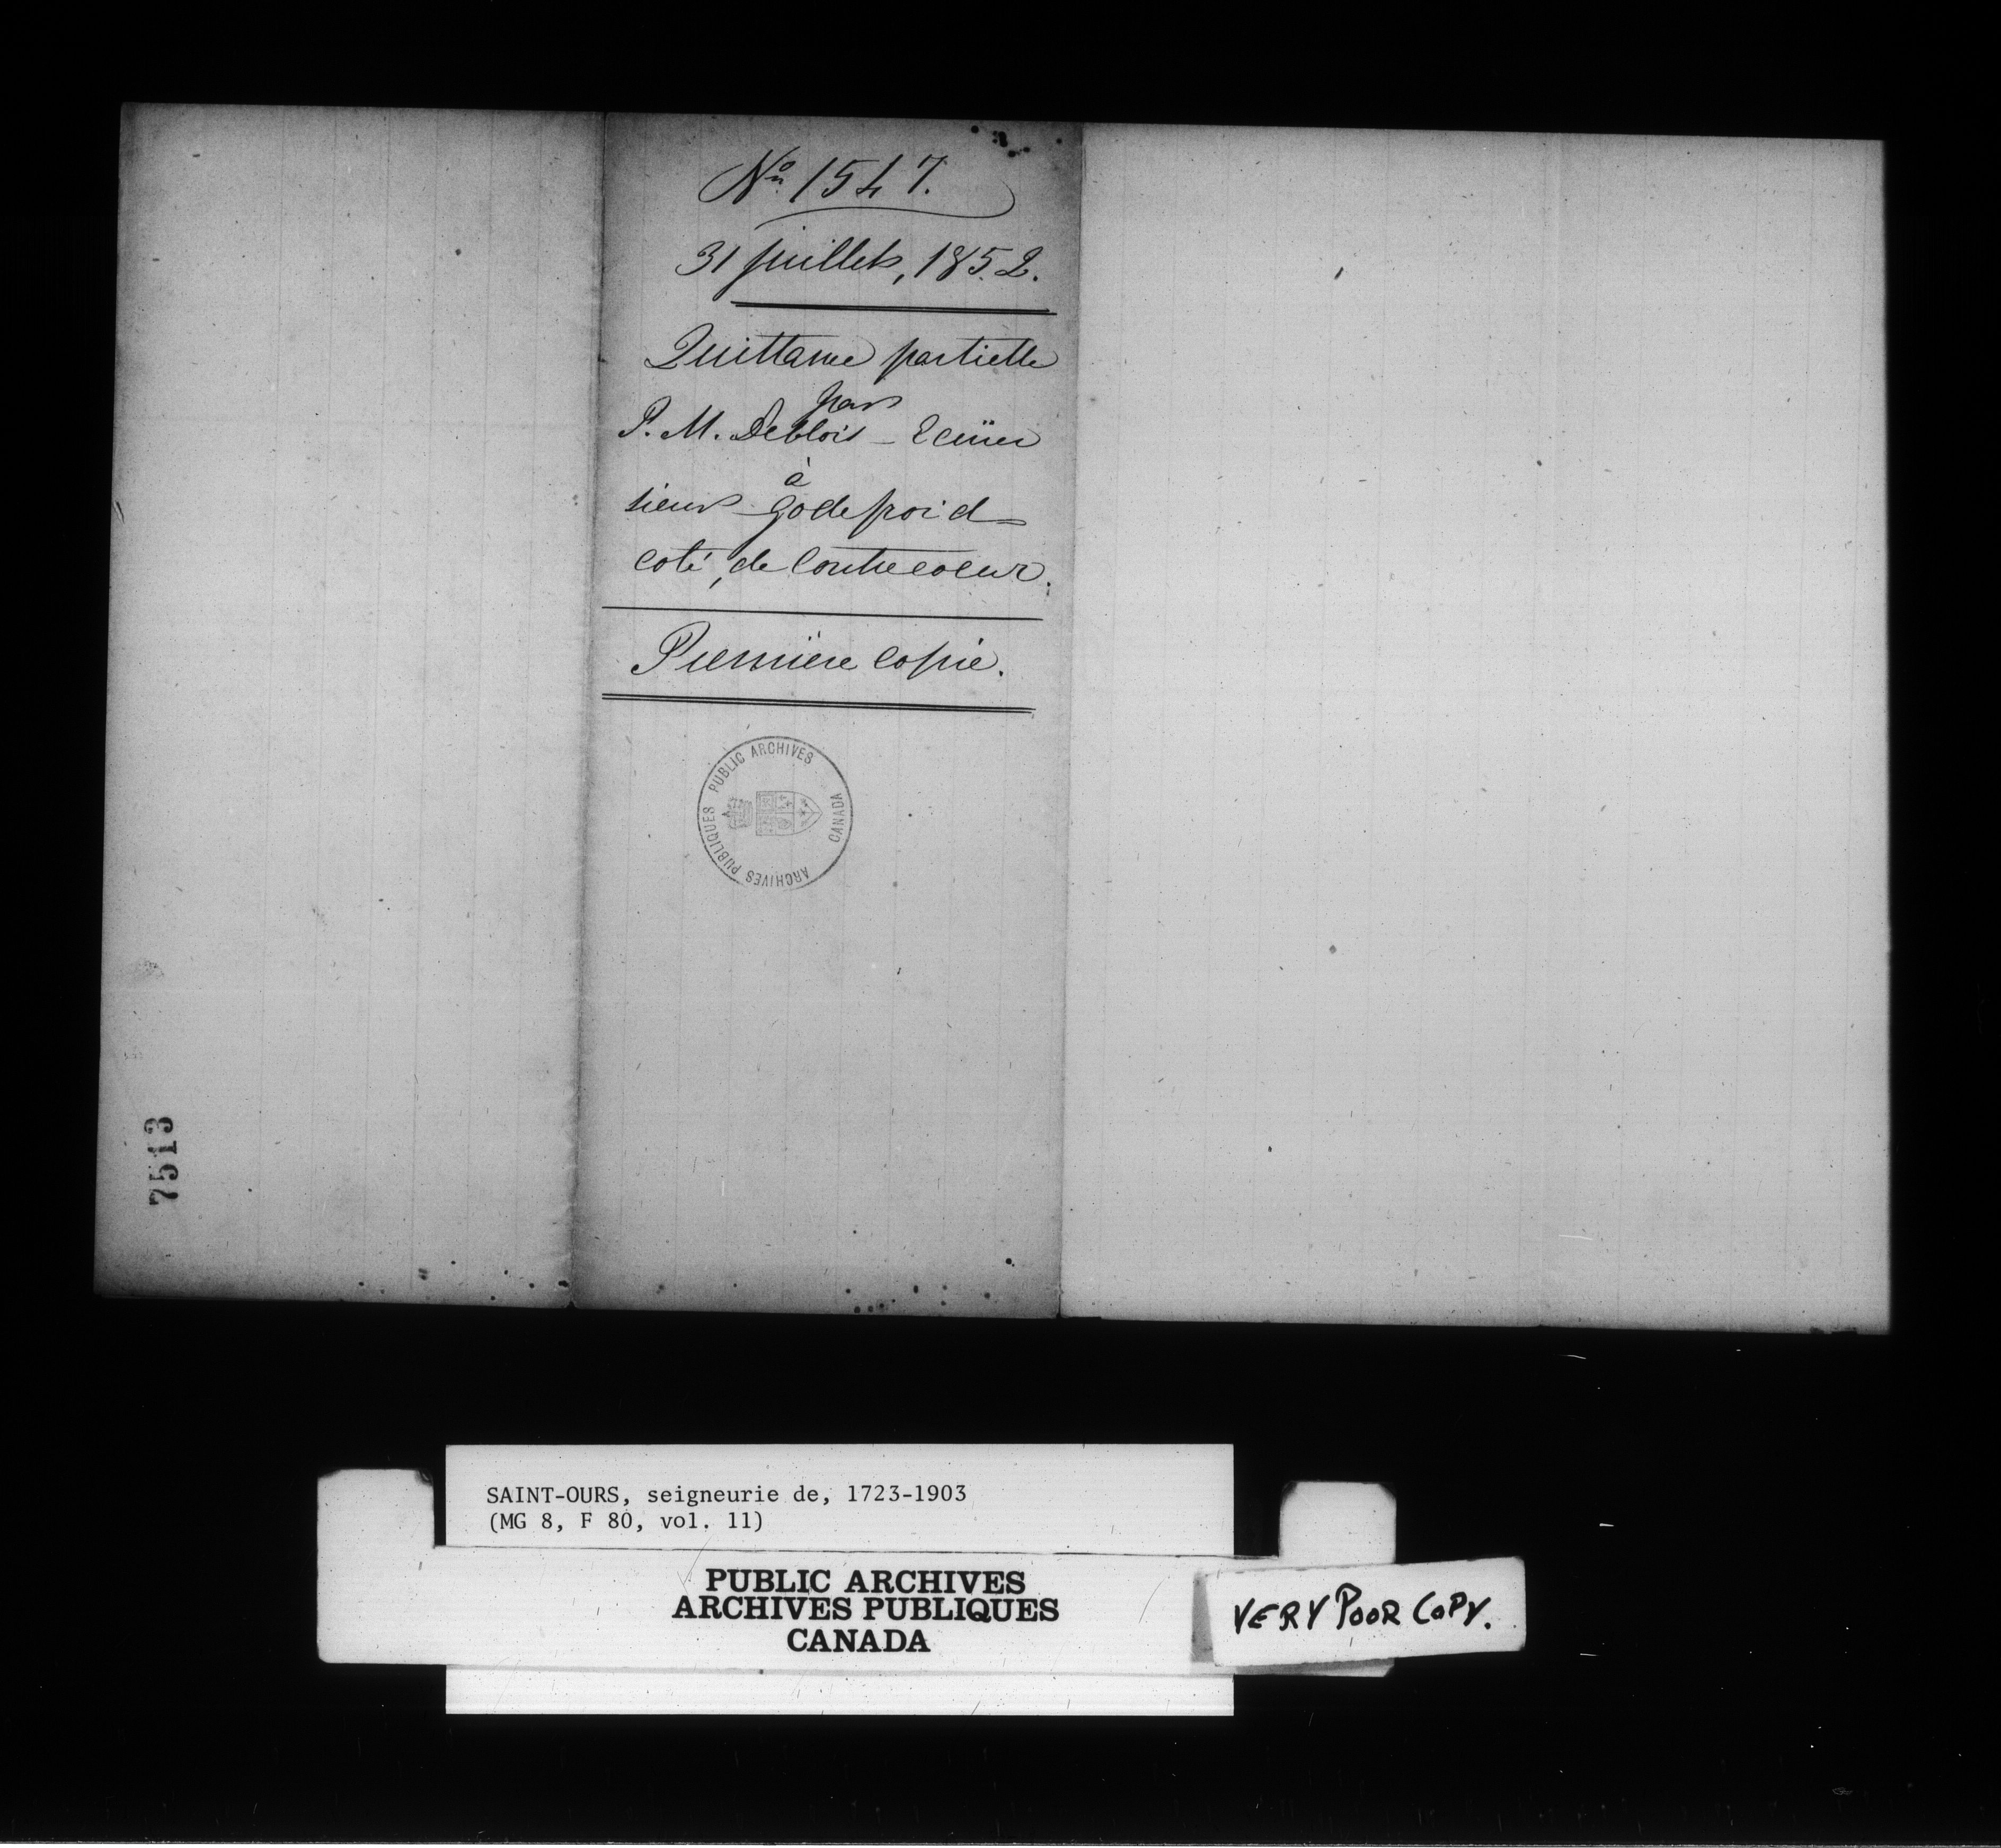 No 1547.
31 juillet, 1852.
Quittance partielle
par
P. M. Deblois - Ecuier
à
sieur Godefroid
coté, de Contrecoeur.
Première copie.
PUBLIC ARCHIVES
ARCHIVES PUBLIQUES
CANADA
7513
SAINT-OURS, seigneurie de, 1723-1903
(MG 8, F 80, vol. 11)
PUBLIC ARCHIVES
ARCHIVES PUBLIQUES
CANADA
VERY POOR COPY.